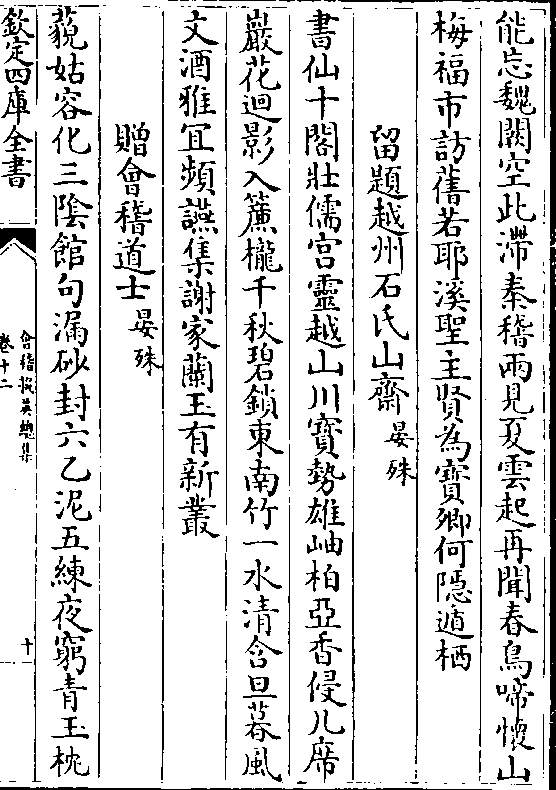 能忘魏闕空此滯秦稽兩見夏雲起再聞春鳥啼懷山
梅福市訪舊若耶溪聖主賢為寳卿何隠遁栖
留題越州石氏山齋 晏殊
書仙十閣壯儒宫靈越山川寳勢雄岫柏亞香侵几席
巖花迴影入簾櫳千秋碧鎖東南竹一水清含旦暮風
文酒雅宜頻讌集謝家蘭玉有新叢
贈會稽道士 晏殊
藐姑容化三陰館句漏砂封六乙泥五練夜窮青玉枕
欽定四庫全書
會稽掇英總集
卷十二
十